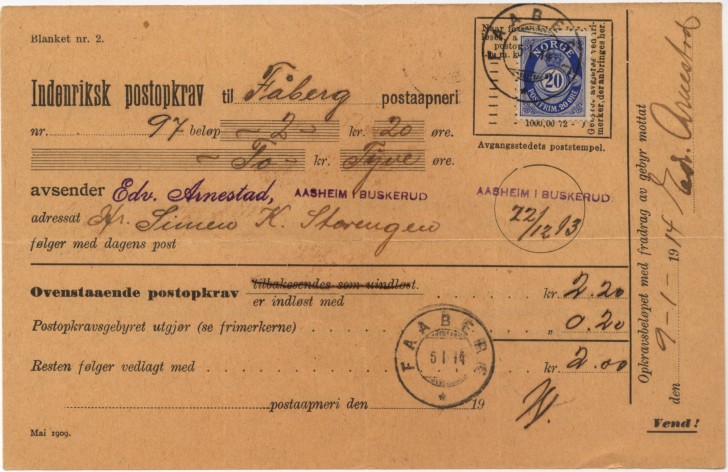 Blanket nr. 2.
Indenriksk postopkrav til Fåberg postaapneri
nr. 97 beløp - 2 - kr. 20 øre.
- To - kr. Tyve øre.
avsender Edv. Arnestad, AASHEIM I BUSKERUD
adressat Hr. Simen K. Storengen
følger med dagens post
FAABERG
NORGE
20
POSTFRIM. 20 ØRE
1000,00 72 - 7
merker, der anbringes her.
Avgangsstedets poststempel.
AASHEIM I BUSKERUD
22/12 13
Ovenstaaende postopkrav tilbakesendes som uindløst.
er indløst med kr. 2.20
Postopkravsgebyret utgjør (se frimerkerne) „ 0.20
Resten følger vedlagt med kr. 2.00
FAABERG
5 I 14
postaapneri den 19
Mai 1909.
Vend!
Opkravsbeløpet med fradrag av gebyr mottat
den 9 - 1 - 1914 Edv. Arnestad